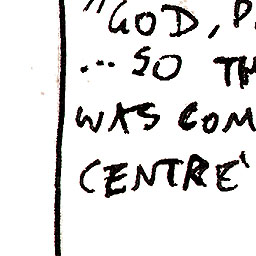 "GOD, P
... SO TH
WAS COM
CENTRE'